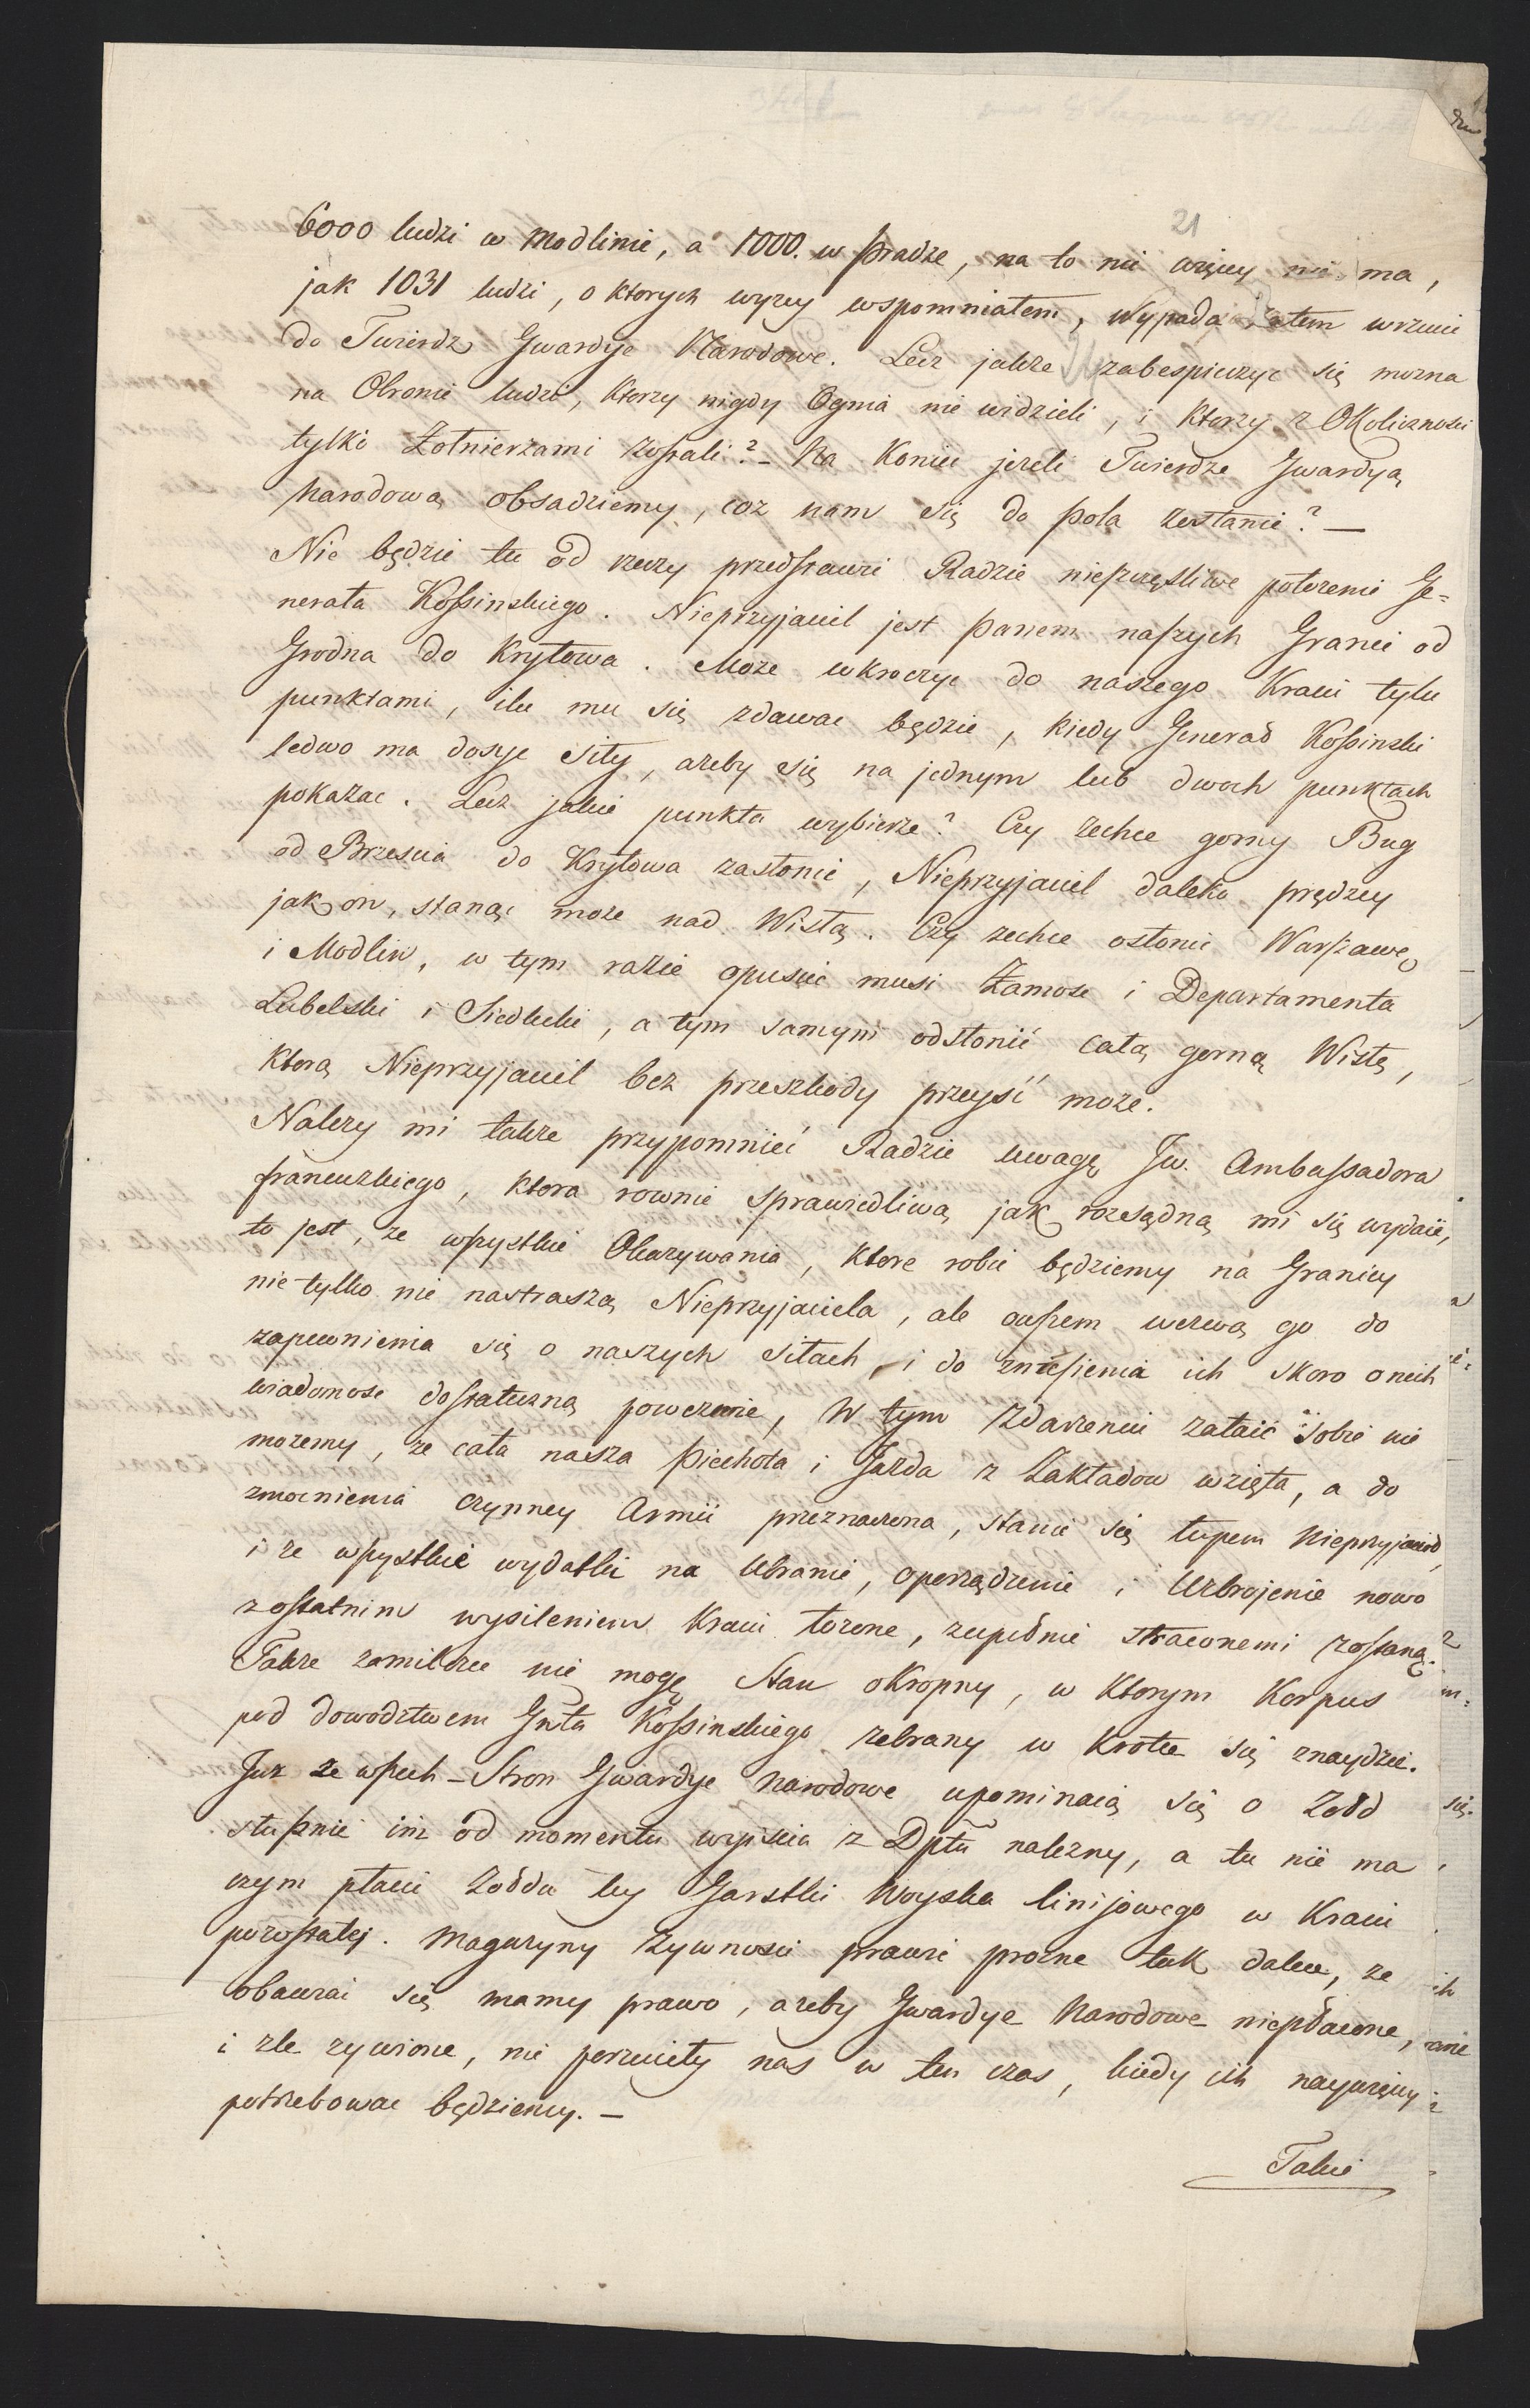 21
6000 ludzi w Modlinie, a 1000. w Pradze, na to nie więcey nie ma,
jak 1031 ludzi, o ktorych wyzey wspomniałem, Wypada zatem wrzucic
do Twierdz Gwardye Narodowe. Lecz jakze zabespieczyc się mozna
na Obronie ludzi, ktorzy nigdy Ognia nie widzieli, i ktorzy z Okolicznosci
tylko Zołnierzami zostali? – Na Koniec jezeli Twierdze Gwardyą
Narodową obsadziemy, coz nam się do Pola zostanie? —
Nie będzie tu od rzeczy przedstawic Radzie nieszczęśliwe połozenie Ge=
nerała Kossinskiego. Nieprzyjaciel jest Panem naszych Granic od
Grodna do Kryłowa. Moze wkroczyc do naszego Kraiu tylu
punktami, ilu mu się zdawac będzie, kiedy Generał Kossinski
ledwo ma dosyc siły, azeby się na jednym lub dwoch punktach
pokazac. Lecz jakie punkta wybierze? Czy zechce gorny Bug
od Brzescia do Kryłowa zasłonic, Nieprzyjaciel daleko prędzey
jak on, stanąc moze nad Wisłą. Czy zechce osłonic Warszawę
i Modlin, w tym razie opuscic musi Zamosc i Departamenta
Lubelski i Siedlecki, a tym samym odsłonić całą gorną Wisłę,
ktorą Nieprzyjaciel bez przeszkody przeyść moze.
Nalezy mi takze przypomnieć Radzie uwagę Jw. Ambassadora
francuzkiego, ktora rownie sprawiedliwą jak rozsądną mi się wydaie,
to jest, ze wszystkie Okazywania, ktore robic będziemy na Granicy
nie tylko nie nastraszą Nieprzyjaciela, ale owszem wezwą go do
zapewnienia się o naszych siłach, i do zniesienia ich skoro o nich
wiadomosc dostateczną powezmie, W tym Zdarzeniu zataić sobie nie
mozemy, ze cała nasza Piechota i Jazda z Zakładow wzięta, a do
zmocnienia czynney Armii przeznaczona, stanie się łupem Nieprzyjaciół,
i ze wszystkie wydatki na Ubranie, oporządzenie i Uzbrojenie nowo
z ostatnim wysileniem Kraiu łozone, zupełnie straconemi zostaną.
Takze zamilczec nie mogę Stan okropny, w ktorym Korpus
pod dowodztwem Gnła Kossinskiego zebrany w krotce się znaydzie.
Juz ze wszech – Stron Gwardye Narodowe upominaią się o Zołd
słusznie im od momentu wyiscia z Dptu nalezny, a tu nie ma
czym płacic Zołdu tey Garstki Woyska linijowego w Kraiu
pozostałej. Magazyny zywnosci prawie prozne tak dalece, ze
obawiac się mamy prawo, azeby Gwardye Narodowe niepłacone,
i zle zywione, nie porzuciły nas w ten czas, kiedy ich naywięcey
potrzebowac będziemy. –
Takie